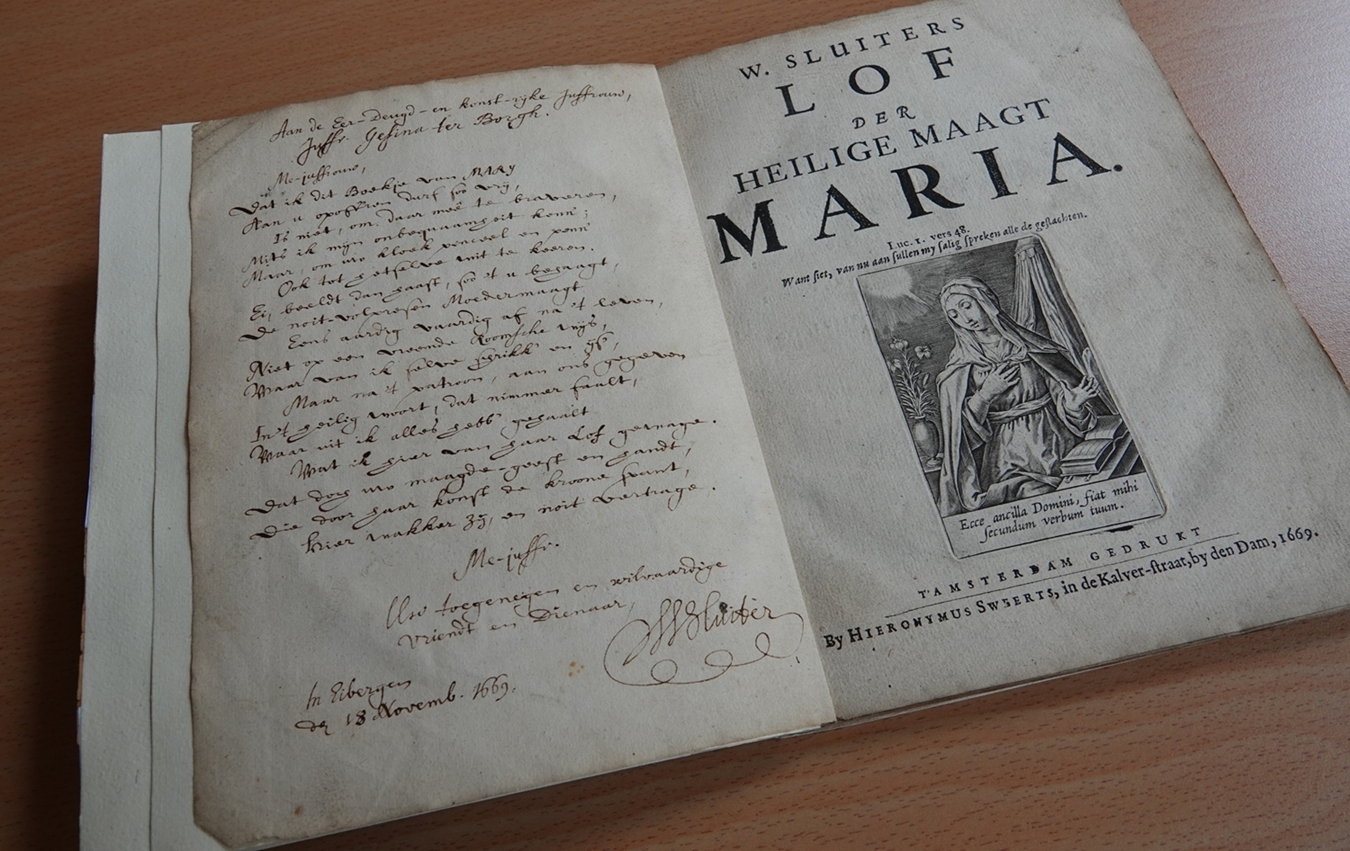 Aan de Eer- Deugd- en konst-rijke Juffrouw,
Juffr. Gesina ter Borgh.
Me-juffrouw,
Dat ik dit Boekje van MARY
Aan u opoffren darf soo vry,
Is niet, om daar meê te braveren,
Mits ik mijn onbequaamheit kenn;
Maar, om uw kloek penceel en penn
Ook tot hetselve uit te keeren.
Ey, beeldt dan haast, soo't u behaagt,
De noit-volpresen Moedermaagt
Eens aardig vaardig af na 't leven,
Niet op een vreemde Roomsche wijs,
Waar van ik selve schrikk en ijs,
Maar na 't patroon, aan ons gegeven
In't heilig woort, dat nimmer faalt,
Waar uit ik alles hebb' gehaalt
Wat ik hier van haar Lof gewage.
Dat doch uw maagde-geest en handt,
Die door haar konst de kroone spant,
Hier wakker zij, en noit vertrage.
Me-juffr.
Uw toegenegen en wilvaardige
vriendt en Dienaar,
W Sluiter
In Eibergen
den 18 Novemb. 1669.
W. SLUITERS
LOF
DER
HEILIGE MAAGT
MARIA.
Luc. 1. vers 48.
Want siet, van nu aan sullen my salig spreken alle de geslachten.
Ecce ancilla Domini, fiat mihi
secundum verbum tuum.
T'AMSTERDAM GEDRUKT
By HIERONYMUS SWEERTS, in de Kalver-straat, by den Dam, 1669.